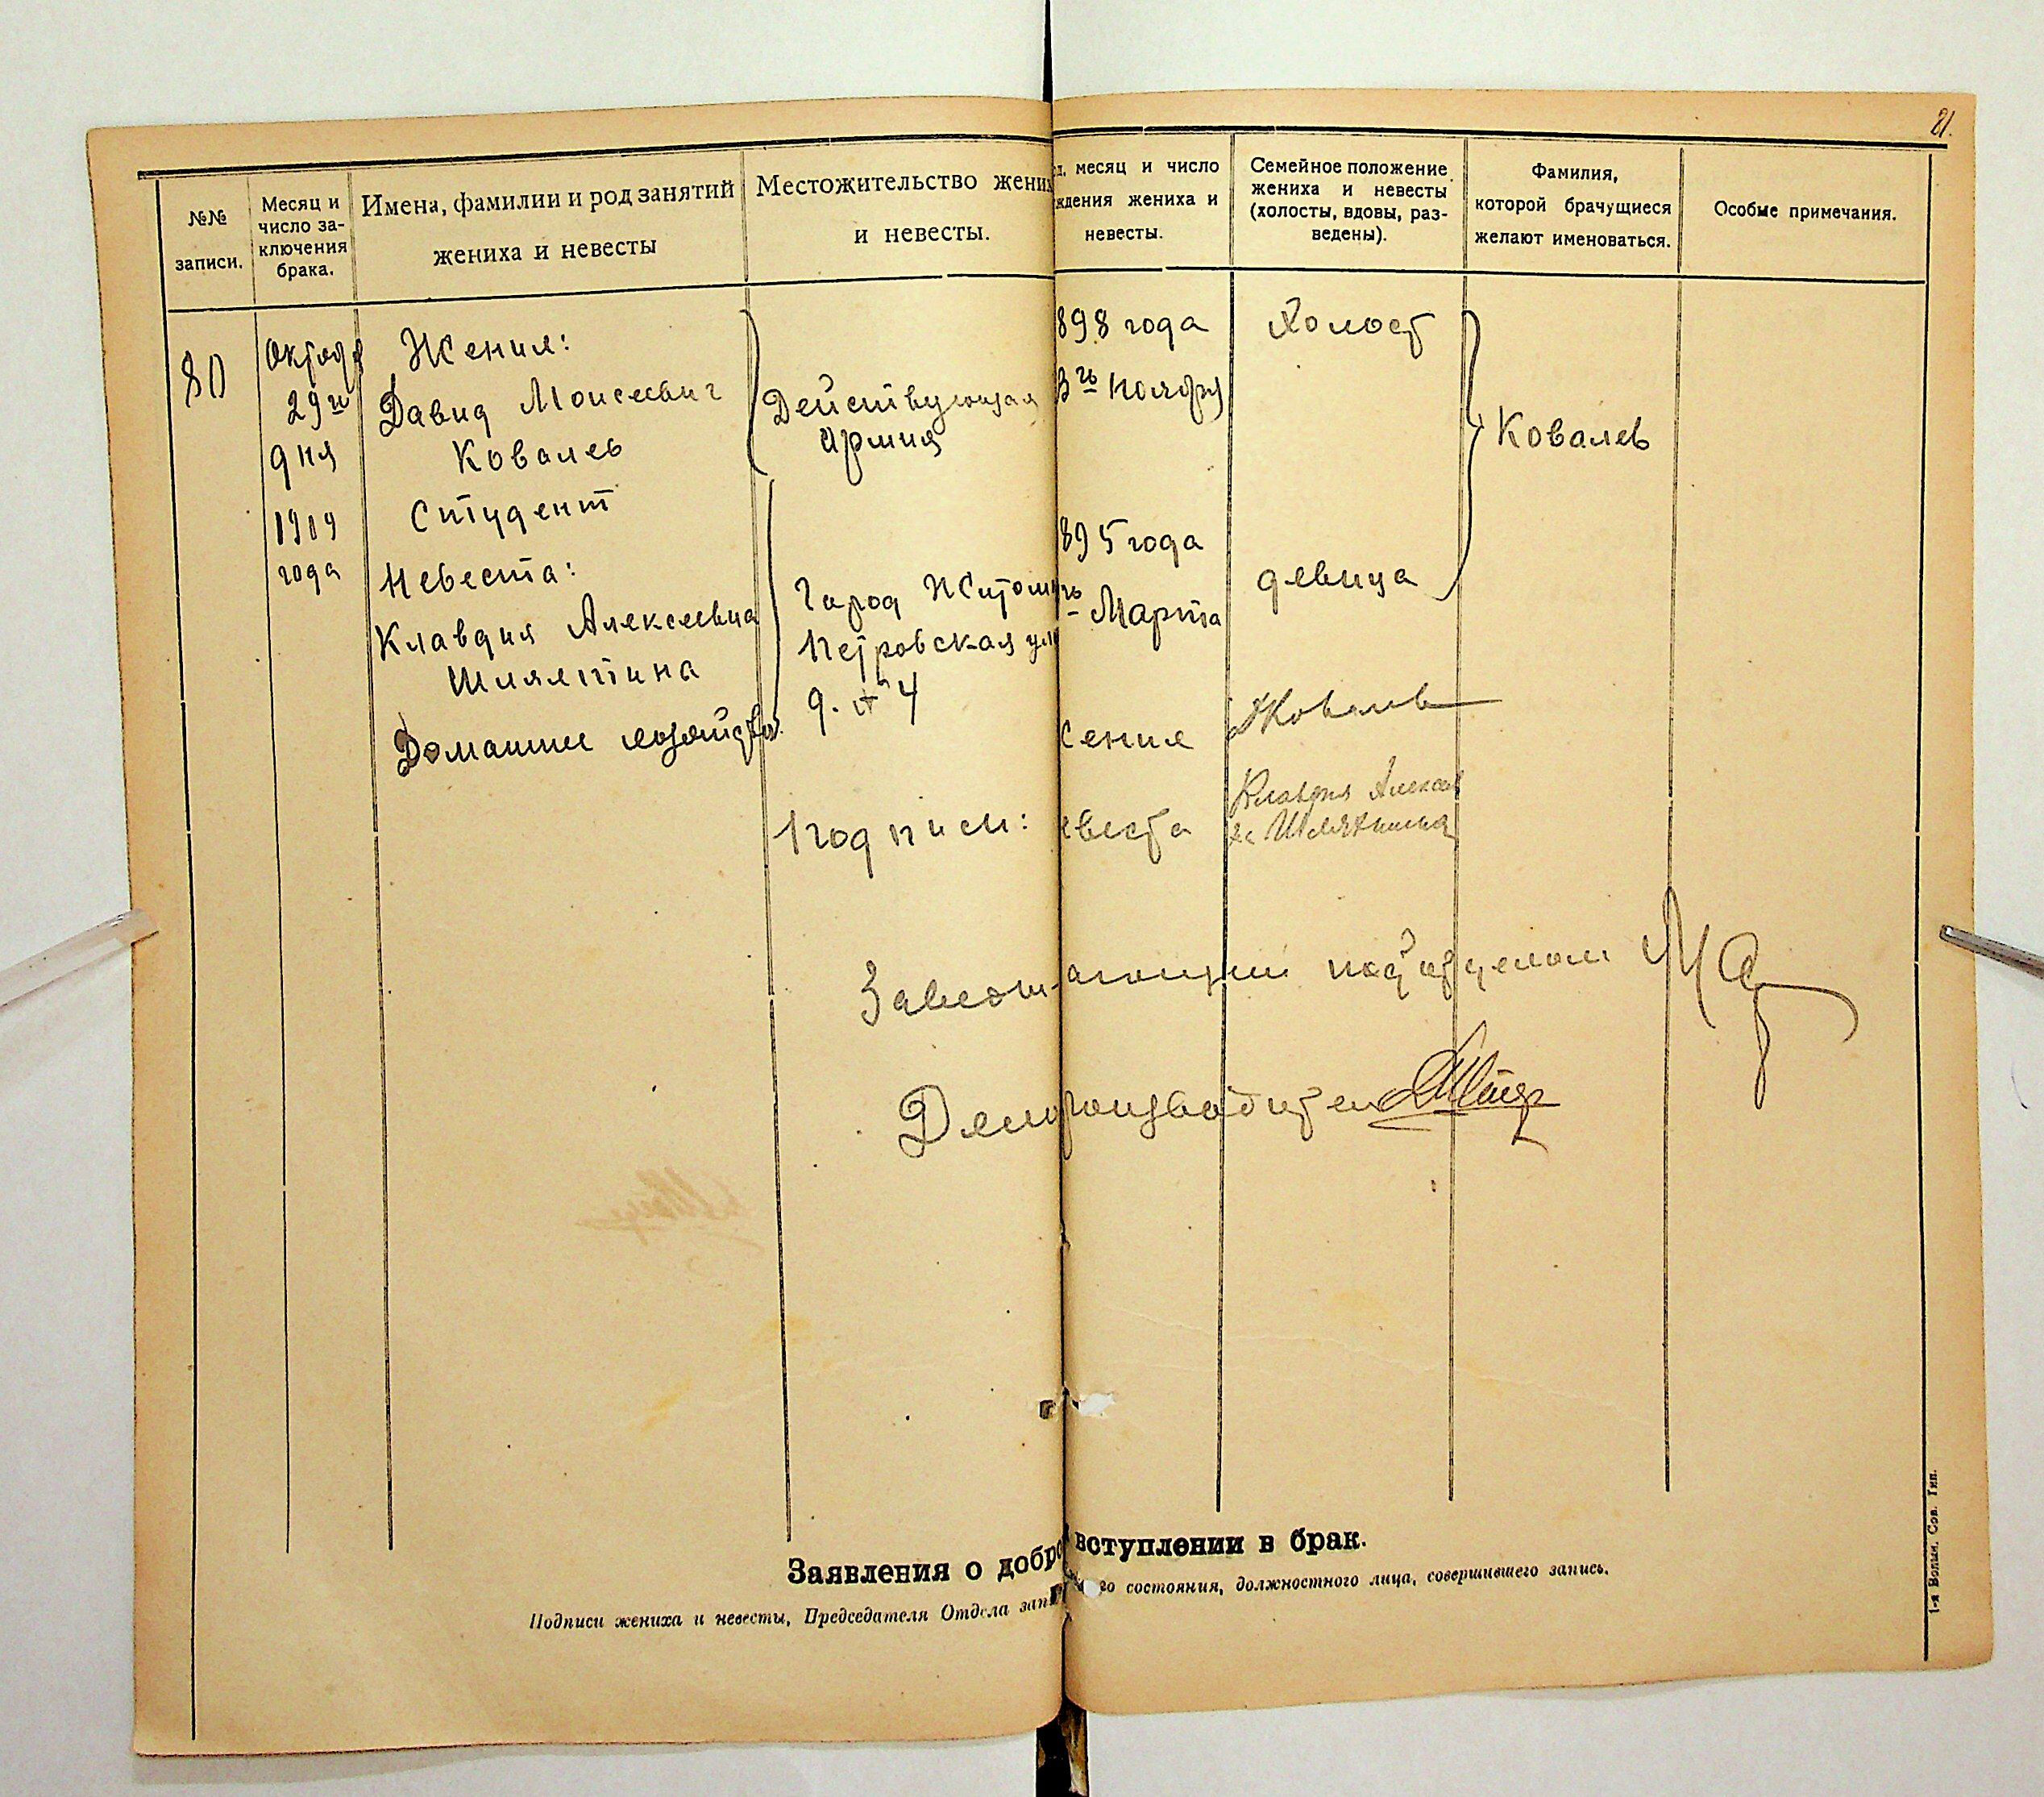 21.
№№ записи.
Месяц и число за-
ключения
брака.
Имена, фамилии и род занятий
жениха и невесты
Местожительство жених
и невесты.
месяц и число
ждения жениха и
невесты.
Семейное положение
жениха и невесты
(холосты, вдовы, раз-
ведены).
Фамилия,
которой брачущиеся
желают именоваться.
Особые примечания.
80
Октября
29го
дня
1919
года
Жених:
Давид Моисеевич
Ковалев
Студент
Невеста:
Клавдия Алексеевна
Шляхтина
Домашнее хозяйство.
Действующая
Армия
Город Житомир
Петровская ул
д. № 4
898 года
3го ноября
895 года
го Марта
Холост
девица
Ковалев
Подписи:
жених
ДКовалев
евеста
Клавдия Алексе
Шляхтина
Заведывающий подотделом
Делопроизводитель
Заявления о добро вступлении в брак.
Подписи жениха и невесты, Председателя Отдела запи го состояния, должностного лица, совершившего запись.
1-я Волын. Сов. Тип.